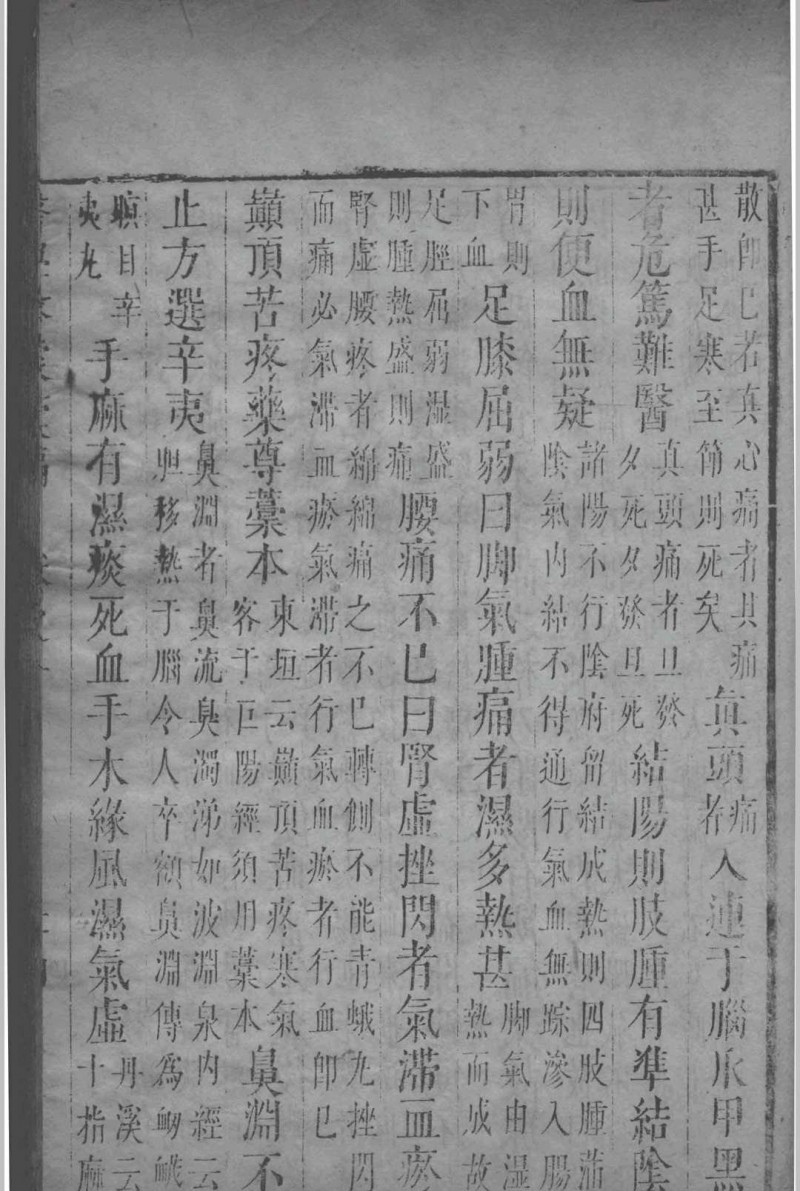 散即已若真心痛者其痛
甚手足寒至節則死矣
真頭痛者入連于腦爪甲黑
者危篤難醫
真頭痛者旦發
夕死夕發旦死
結陽則肢腫有準結陰
則便血無疑
諸陽不行陰府留結成熱則四肢腫滿
陰氣內結不得通行氣血無踪滲入腸
胃則
下血
足膝屈弱曰脚氣腫痛者濕多熱甚
脚氣由湿
熱而成故
足脛屈弱湿盛
則腫熱盛則痛
腰痛不已曰腎虛挫閃者氣滯血瘀
腎虛腰疼者綿綿痛之不已轉側不能青蛾丸挫閃
而痛必氣滞血瘀氣滞者行氣血瘀者行血即已
巔頂苦疼藥尊藁本
東垣云巔頂苦疼寒氣
客于巨陽經須用藁本
鼻淵不
止方選辛夷
鼻淵者鼻流臭濁涕如波淵泉內經云
胆移熱于腦令人卒額鼻淵傳為衂衊
瞑目辛
夷丸
手麻有濕痰死血手木緣風濕氣虛
丹溪云
十指麻